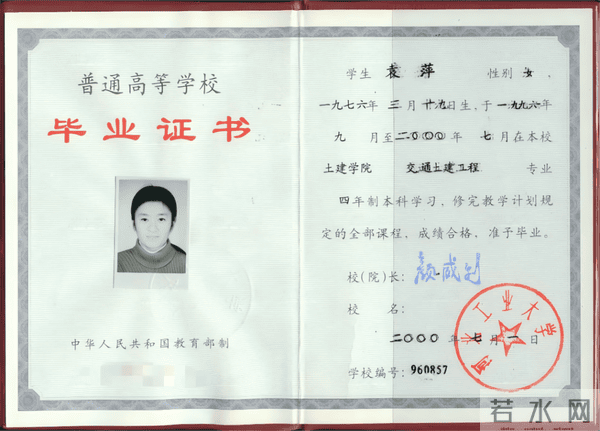 普通高等学校
毕业证书
中华人民共和国教育部制
学生 袁萍 性别 女,
一九七六年 三月十九日生,于一九九六年
九月至二〇〇〇年 七月在本校
土建学院 交通土建工程 专业
四年制本科学习,修完教学计划规
定的全部课程,成绩合格,准予毕业。
校(院)长:
校 名:
工业大学
二〇〇〇年七月一日
学校编号:960857
若水网